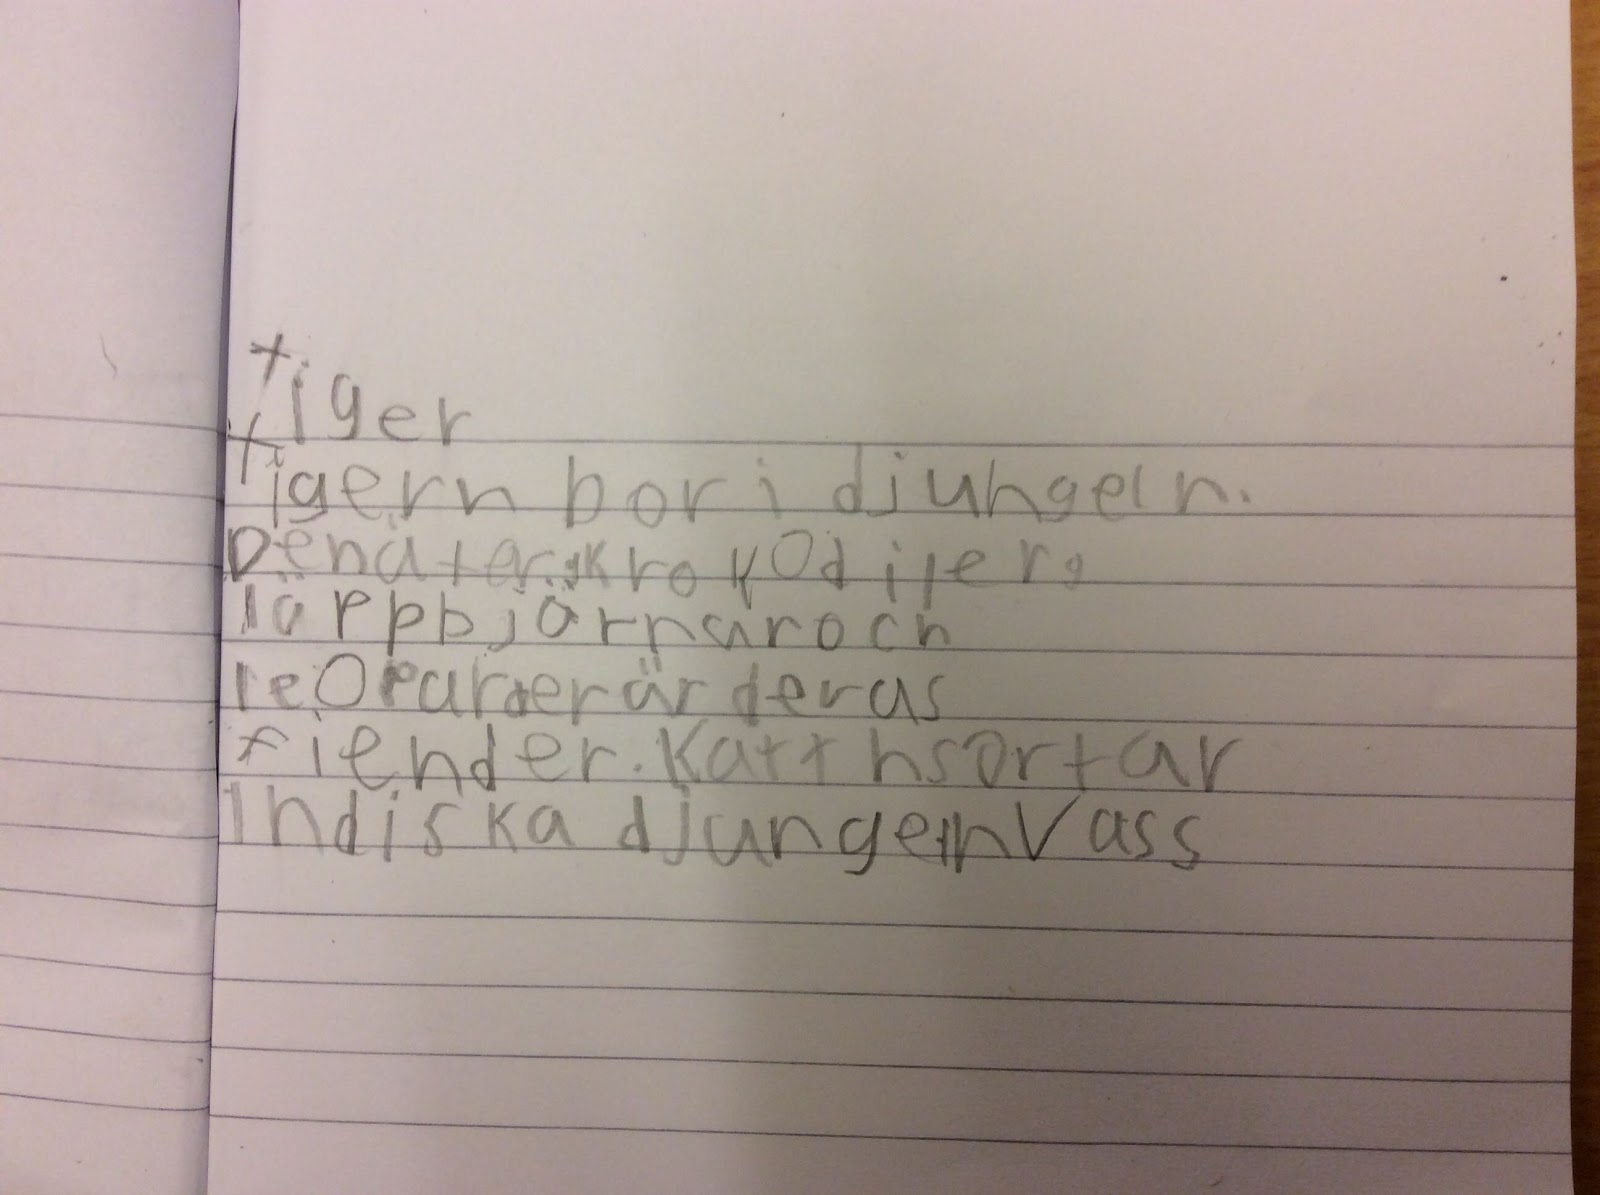 tiger
tigern bor i djungeln.
Den äter krokOdiler.
läppbjörnar och
leOparder är deras
fiender. Katt hsortar
Indiska djungeln Vass